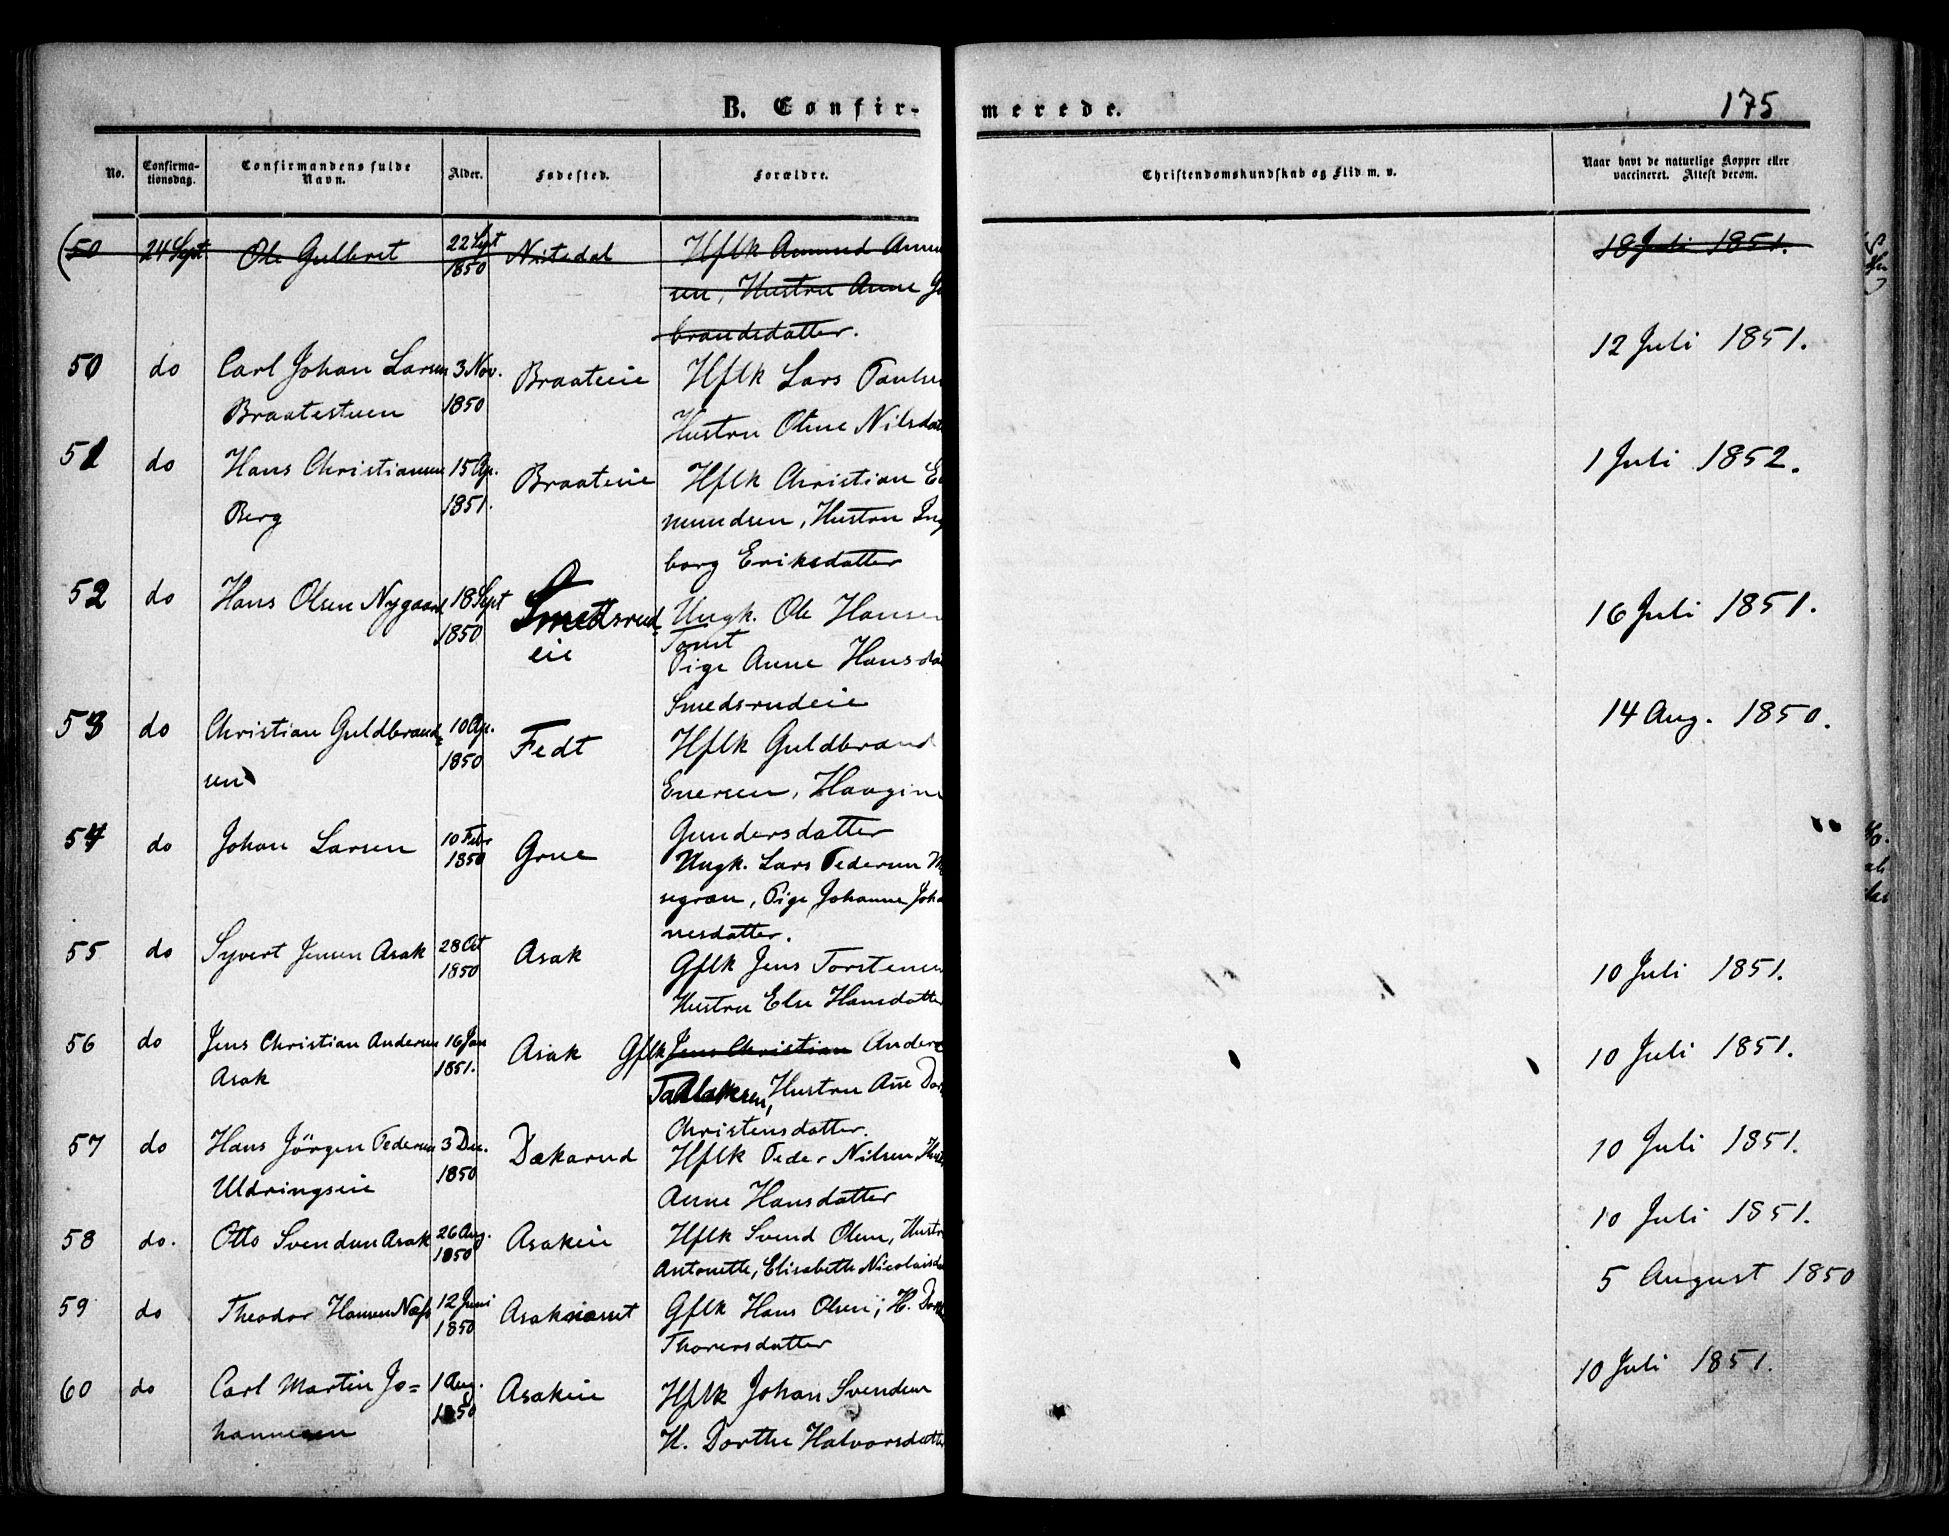 B. Confir-
merede.
175
No.
Confirma-
tionsdag.
Confirmandens fulde
Navn.
Alder.
Fødested.
Forældre.
Christendomskundskab og Flid m. v.
Naar havt de naturlige Kopper eller
vaccineret. Attest derom.
50 24 Sept Ole Gulbret 22 Sept Nitedal Hflk Amund Amun
1850
sen, Hustru Anne Gu
brandsdatter.
18 Juli 1851.
50 do Carl Johan Larsen 3 Nov. Braateeie Hflk Lars Paulsen
Braatestuen 1850 Hustru Oline Nilsdat
12 Juli 1851.
51 do Hans Christiansen 15 Ap. Braateeie Hflk Christian E
Berg 1851. mundsen, Hustru Ing
borg Eriksdatter
1 Juli 1852.
52 do Hans Olsen Nygaard 18 Sept Smedsrud Ungk. Ole Hansen
1850 eie Tomt
Pige Anne Hansda
Smedsrudeie
16 Juli 1851.
53 do Christian Guldbrand= 10 Ap. Fedt Hflk Guldbrand
sen 1850 Enersen, Haagine
Gundersdatter
14 Aug. 1850.
54 do Johan Larsen 10 Febr Grue Ungk. Lars Pedersen
1850 segran, Pige Johanne Joha
nesdatter.
55 do Syvert Jensen Asak 28 Oct Asak Gflk Jens Torstensen
1850 Hustru Else Hansdatter
10 Juli 1851.
56 do Jens Christian Andersen 16 Jan Asak Gflk Jens Christian Anders
Asak 1851. Hustru Ane Dor
Christensdatter.
10 Juli 1851.
57 do Hans Jörgen Pedersen 3 Dec. Dækarud Hflk Peder Nilsen Hust
Uldringseie 1850 Anne Hansdatter
10 Juli 1851.
58 do. Otto Svendsen Asak 26 Aug. Asakeie Hflk Svend Olsen, Hustr
1850 Antonette, Elisabeth Nicolaisda
10 Juli 1851.
59 do Theodor Hansen Næss 12 Juni Asaknæsset Gflk Hans Olsen; H. Dorth
1850 Thorersdatter
5 August 1850
60 do Carl Martin Jo= 1 Aug. Asakeie Hflk Johan Svendsen
hannesen 1850 H. Dorthe Halvorsdatter
10 Juli 1851.